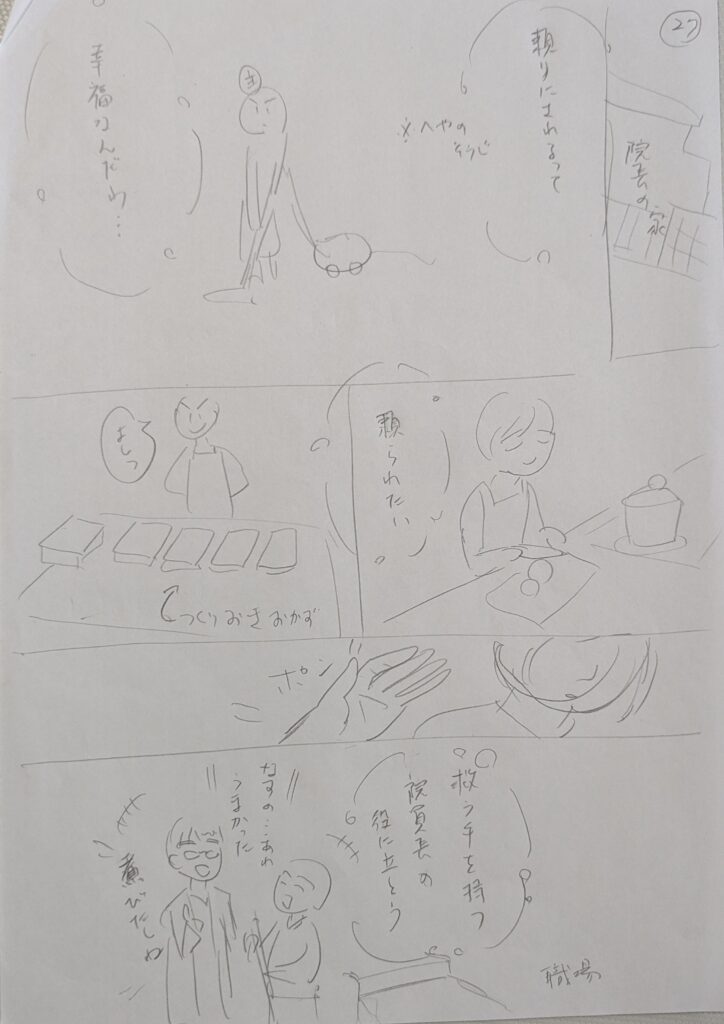 27
院長の家
頼りにされるって
※へやの
そうじ
き
幸福なんだわ…
頼られたい
よしっ
つくりおきおかず
ポン
救う手を持つ
院長の
役に立とう
なすの…あれ
うまかった
煮びたしね
職場